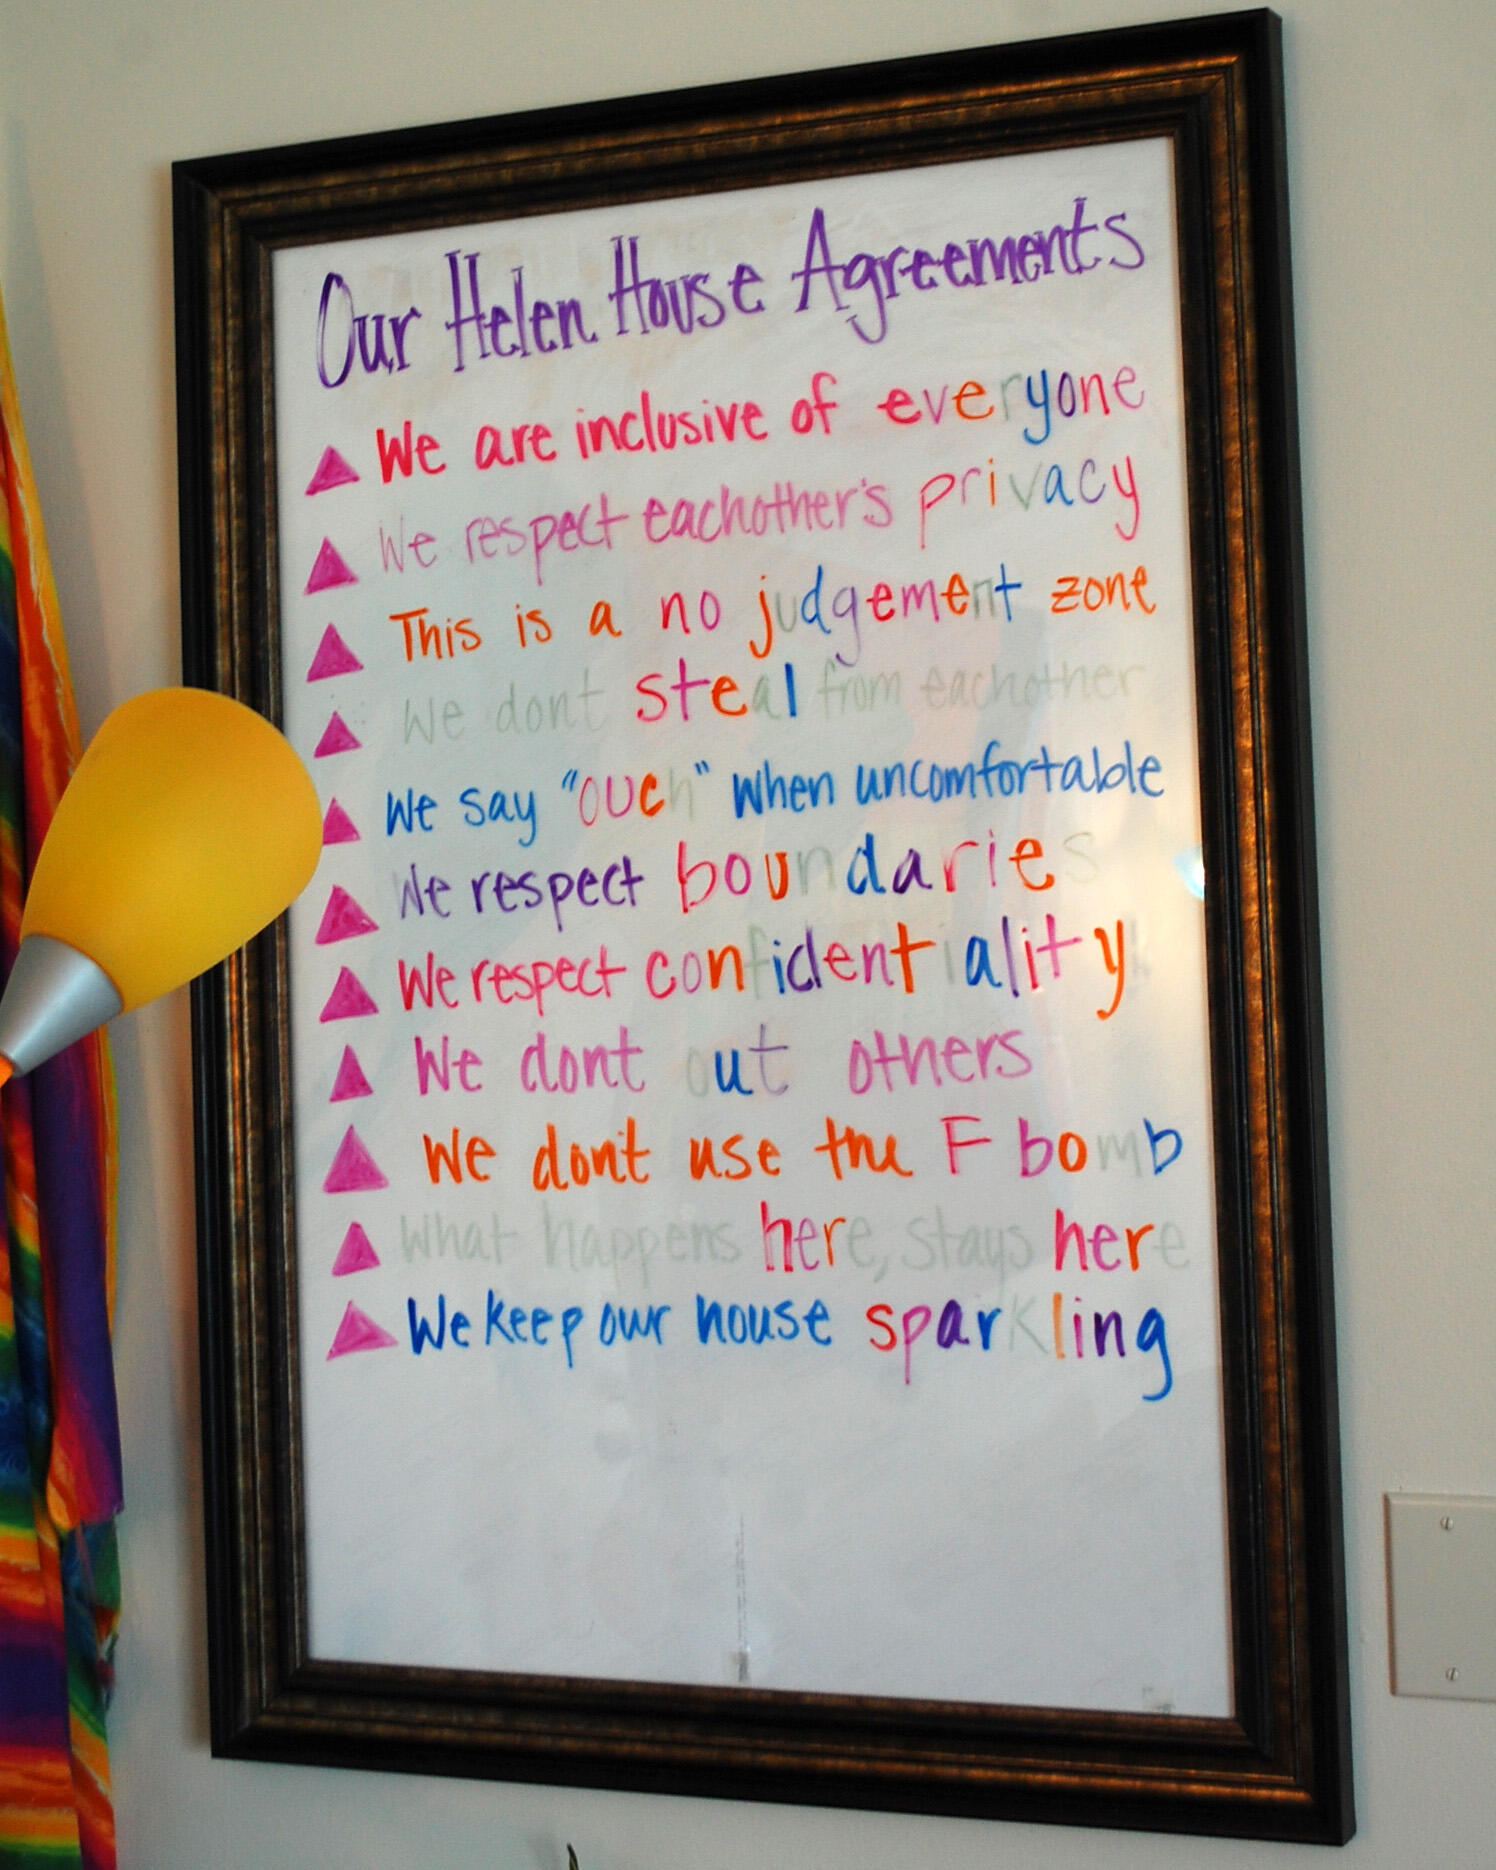 Our Helen House Agreements
We are inclusive of everyone
We respect eachother's privacy
This is a no judgement zone
We dont steal from eachother
We say "ouch" when uncomfortable
We respect boundaries
We respect confidentiality
We dont out others
We don't use the F bomb
What happens here, stays here
We keep our house sparkling